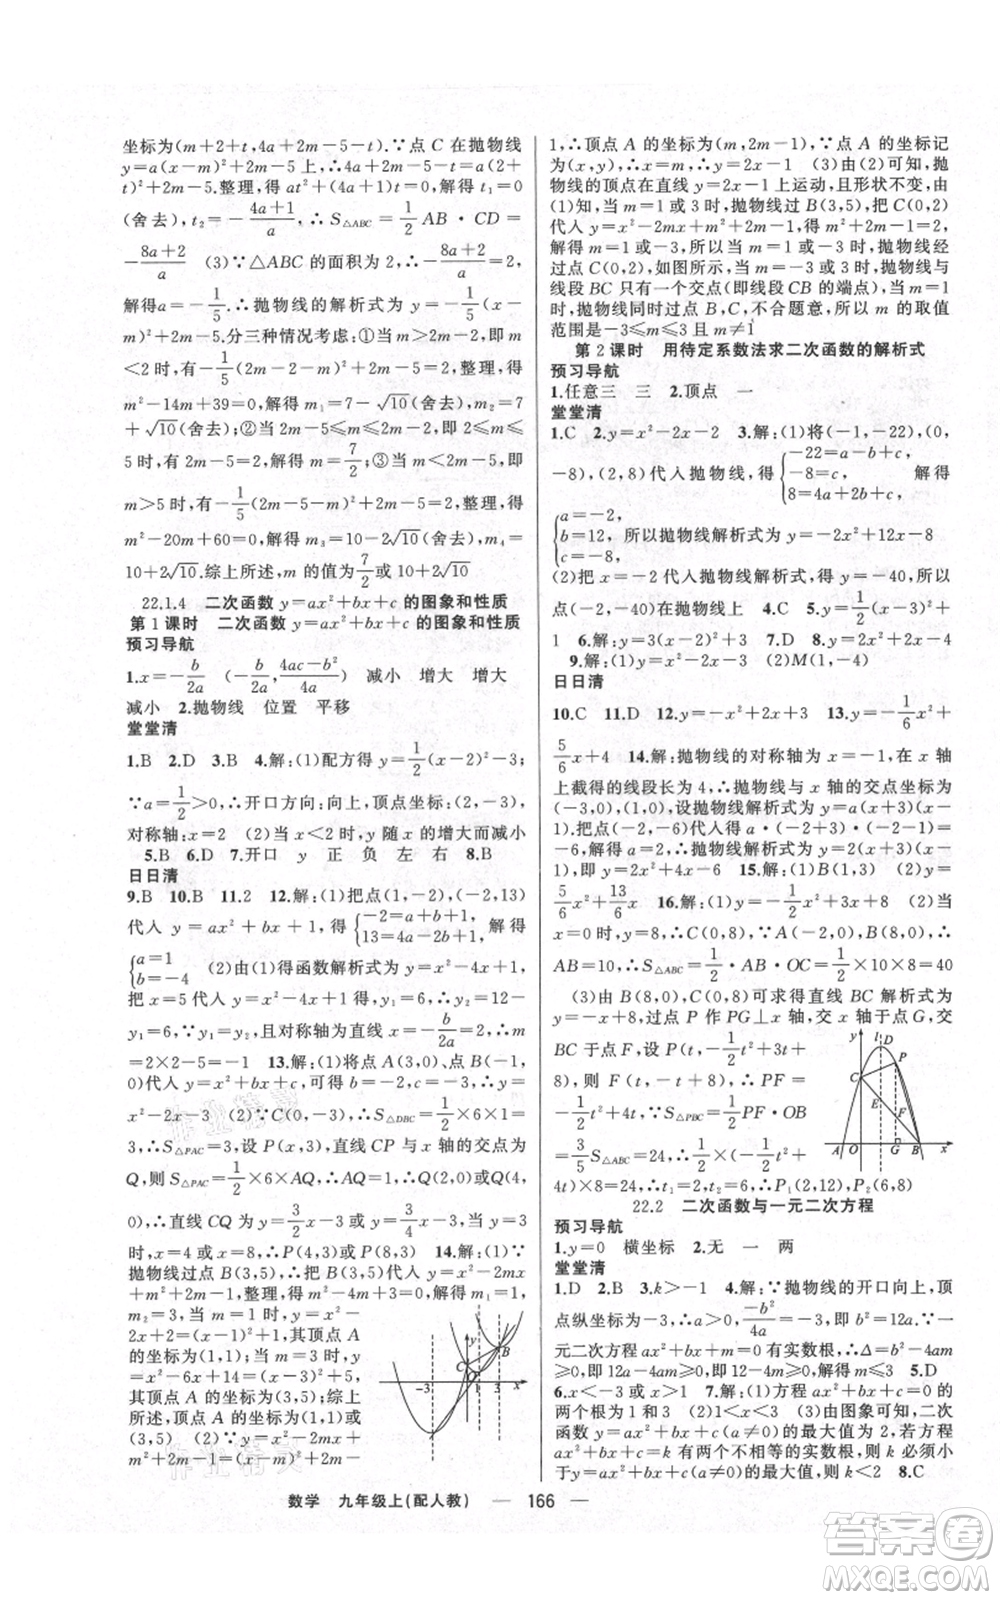 坐标为(m+2+t,4a+2m-5-t).∵点 C 在抛物线
y=a(x-m)²+2m-5上,∴4a+2m-5-t=a(2+
t)²+2m-5.整理,得 at²+(4a+1)t=0.解得 t₁=0
(舍去),t₂=-(4a+1)/a,∴S△ABC=1/2 AB·CD=
-(8a+2)/a (3)∵△ABC 的面积为 2,∴-(8a+2)/a=2,
解得a=-1/5.∴抛物线的解析式为 y=-1/5(x-m)²
+2m-5.分三种情况考虑:①当 m>2m-2,即 m<2时,有
-1/5(2m-2-m)²+2m-5=2,整理,得
m²-14m+39=0,解得 m₁=7-√10(舍去),m₂=7
+√10(舍去);②当 2m-5≤m≤2m-2,即 2≤m≤5
时,有 2m-5=2,解得 m=7/2;③当 m<2m-5,即
m>5 时,有-1/5(2m-5-m)²+2m-5=2,整理,得
m²-20m+60=0,解得 m₃=10-2√10(舍去),m₄=
10+2√10.综上所述,m 的值为7/2或 10+2√10
22.1.4 二次函数 y=ax²+bx+c 的图象和性质
第 1 课时 二次函数 y=ax²+bx+c 的图象和性质
预习导航
1.x=-b/2a (-b/2a,(4ac-b²)/4a) 减小 增大 增大
减小 2.抛物线 位置 平移
堂堂清
1.B 2.D 3.B 4.解:(1)配方得 y=1/2(x-2)²-3;
∵a=1/2>0,∴开口方向:向上,顶点坐标:(2,-3),
对称轴:x=2 (2)当 x<2 时,y 随 x 的增大而减小
5.B 6.D 7.开口 y 正 负 左 右 8.B
日日清
9.B 10.B 11.2 12.解:(1)把点(1,-2),(-2,13)
代入 y=ax²+bx+1,得{-2=a+b+1, 13=4a-2b+1,解得
{a=1 b=-4 (2)由(1)得函数解析式为 y=x²-4x+1,
把 x=5 代入 y=x²-4x+1 得 y₁=6,∴y₂=12-
y₁=6.∵y₁=y₂,且对称轴为直线 x=-b/2a=2,∴m
=2×2-5=-1 13.解:(1)将点 A(3,0)、点 B(-1,
0)代入 y=x²+bx+c,得b=-2,c=-3,∴y=
x²-2x-3 (2)∵C(0,-3),∴S△DBC=1/2×6×1=
3,∴S△PAC=3.设 P(x,3),直线 CP 与 x 轴的交点为
Q,则 S△PAC=1/2×6×AQ,∴AQ=1,∴Q(2,0)或Q(4,
0),∴直线 CQ 为 y=3/2x-3 或 y=3/4x-3,当 y=3 时,
x=4 或 x=8,∴P(4,3)或 P(8,3) 14.解:(1)∵
抛物线过点 B(3,5),∴把 B(3,5)代入 y=x²-2mx
+m²+2m-1,整理,得 m²-4m+3=0,解得 m₁=1,m₂=3.
当 m=1 时,y=x²-
2x+2,其顶点 A 的坐标
为(1,1);当 m=3 时,y
=x²-6x+14,其顶点 A
的坐标为(3,5);综上
所述,顶点 A 的坐标为(1,1)或
(3,5) (2)∵y=x²-2mx
+m²+2m-1=(x-m)²+2m-
1,∴顶点 A 的坐标为(m,2m-1),∵点 A 的坐标记
为(x,y),∴x=m,∴y=2x-1 (3)由(2)可知,抛
物线的顶点在直线 y=2x-1 上运动,且形状不变,由
(1)知,当 m=1 或 3 时,抛物线过 B(3,5),把C(0,2)
代入 y=x²-2mx+m²+2m-1,得 m²+2m-1=2,
解得 m=1 或-3,所以当 m=1 或-3 时,抛物线经
过点 C(0,2),如图所示,当 m=-3 或 3 时,抛物线与
线段 BC 只有一个交点(即线段 CB 的端点),当 m=1
时,抛物线同时过点 B,C,不合题意,所以 m 的取值
范围是-3≤m≤3 且 m≠1
第 2 课时 用待定系数法求二次函数的解析式
预习导航
1.任意三 三 2.顶点 一
堂堂清
1.C 2.y=x²-2x-2 3.解:(1)将(-1,-22),(0,
-8),(2,8)代入抛物线,得{-22=a-b+c, -8=c, 8=4a+2b+c, 解得
{a=-2, b=12, c=-8, 所以抛物线解析式为 y=-2x²+12x-8
(2)把 x=-2 代入抛物线解析式,得 y=-40,所以
点(-2,-40)在抛物线上 4.C 5.y=1/2(x-3)²+
1 6.解:y=3(x-2)²-4 7.D 8.y=2x²+2x-4
9.解:(1)y=-x²+2x+3 (2)M(1,-4)
日日清
10.C 11.D 12.y=-x²+2x+3 13.y=-1/6x²+
5/6x+4 14.解:∵抛物线的对称轴为x=-1,在 x 轴
上截得的线段长为 4,∴抛物线与 x 轴的交点坐标为
(-3,0),(1,0),设抛物线解析式为 y=a(x+3)(x-
1).把点(-2,-6)代入得 a·(-2+3)×(-2-1)=
-6,解得 a=2,∴抛物线解析式为 y=2(x+3)(x-1),
即 y=2x²+4x-6 15.解:(1)B(1,2) (2)y=
-5/6x²+13/6x 16.解:(1)y=-1/2x²+3x+8 (2)当
x=0 时,y=8,∴C(0,8),∵A(-2,0),B(8,0),∴
AB=10,∴S△ABC=1/2·AB·OC=1/2×10×8=40
(3)由 B(8,0),C(0,8)可求得直线 BC 解析式为
y=-x+8,过点 P 作 PG⊥x 轴,交 x 轴于点 G,交
BC 于点 F,设 P(t,-1/2t²+3t+
8),则 F(t,-t+8),∴PF=
-1/2t²+4t.∵S△PBC=1/2PF·OB
=3/5S△ABC=24,∴1/2(-1/2t²+
4t)×8=24,∴t₁=2,t₂=6,∴P₁(2,12),P₂(6,8)
22.2 二次函数与一元二次方程
预习导航
1.y=0 横坐标 2.无 一 两
堂堂清
1.D 2.B 3.k>-1 4.解:∵抛物线的开口向上,顶
点纵坐标为-3,∴a>0,-b²/4a=-3,即 b²=12a.∵
一元二次方程 ax²+bx+m=0 有实数根,∴Δ=b²-4am
≥0,即12a-4am≥0,即 12-4m≥0,解得 m≤3 5.D
6.x<-1 或 x>4 7.解:(1)方程 ax²+bx+c=0 的
两个根为 1 和 3 (2)k<2 (3)由图象可知,二次函
数 y=ax²+bx+c(a≠0)的顶点坐标为(2,2),若方程
ax²+bx+c=k 有两个不相等的实数根,则 k 必须小
于 y=ax²+bx+c(a≠0)的最大值,所以 k<2 8.C
y l D P C E F A O G B x
-3 O 1 3 x y C B
数学 九年级上(配人教) — 166 —
答案圈
MXQE.COM